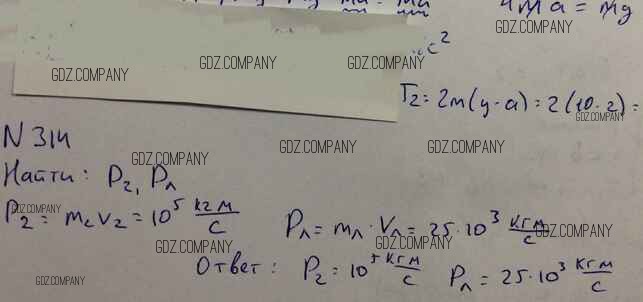 4ma = mg
с²
GDZ.COMPANY GDZ.COMPANY GDZ.COMPANY
GDZ.COMPANY GDZ.COMPANY
T₂ = 2m(g - a) = 2(10 - 2) =
GDZ.COMPANY
N 314
GDZ.COMPANY GDZ.COMPANY GDZ.COMPANY
Найти: P₂, Pл
P₂ = m₂v₂ = 10⁵ кгм/с
GDZ.COMPANY
Pл = mл · Vл = 25 · 10³ кгм/с
GDZ.COMPANY GDZ.COMPANY GDZ.COMPANY
Ответ: P₂ = 10⁵ кгм/с Pл = 25 · 10³ кгм/с
GDZ.COMPANY